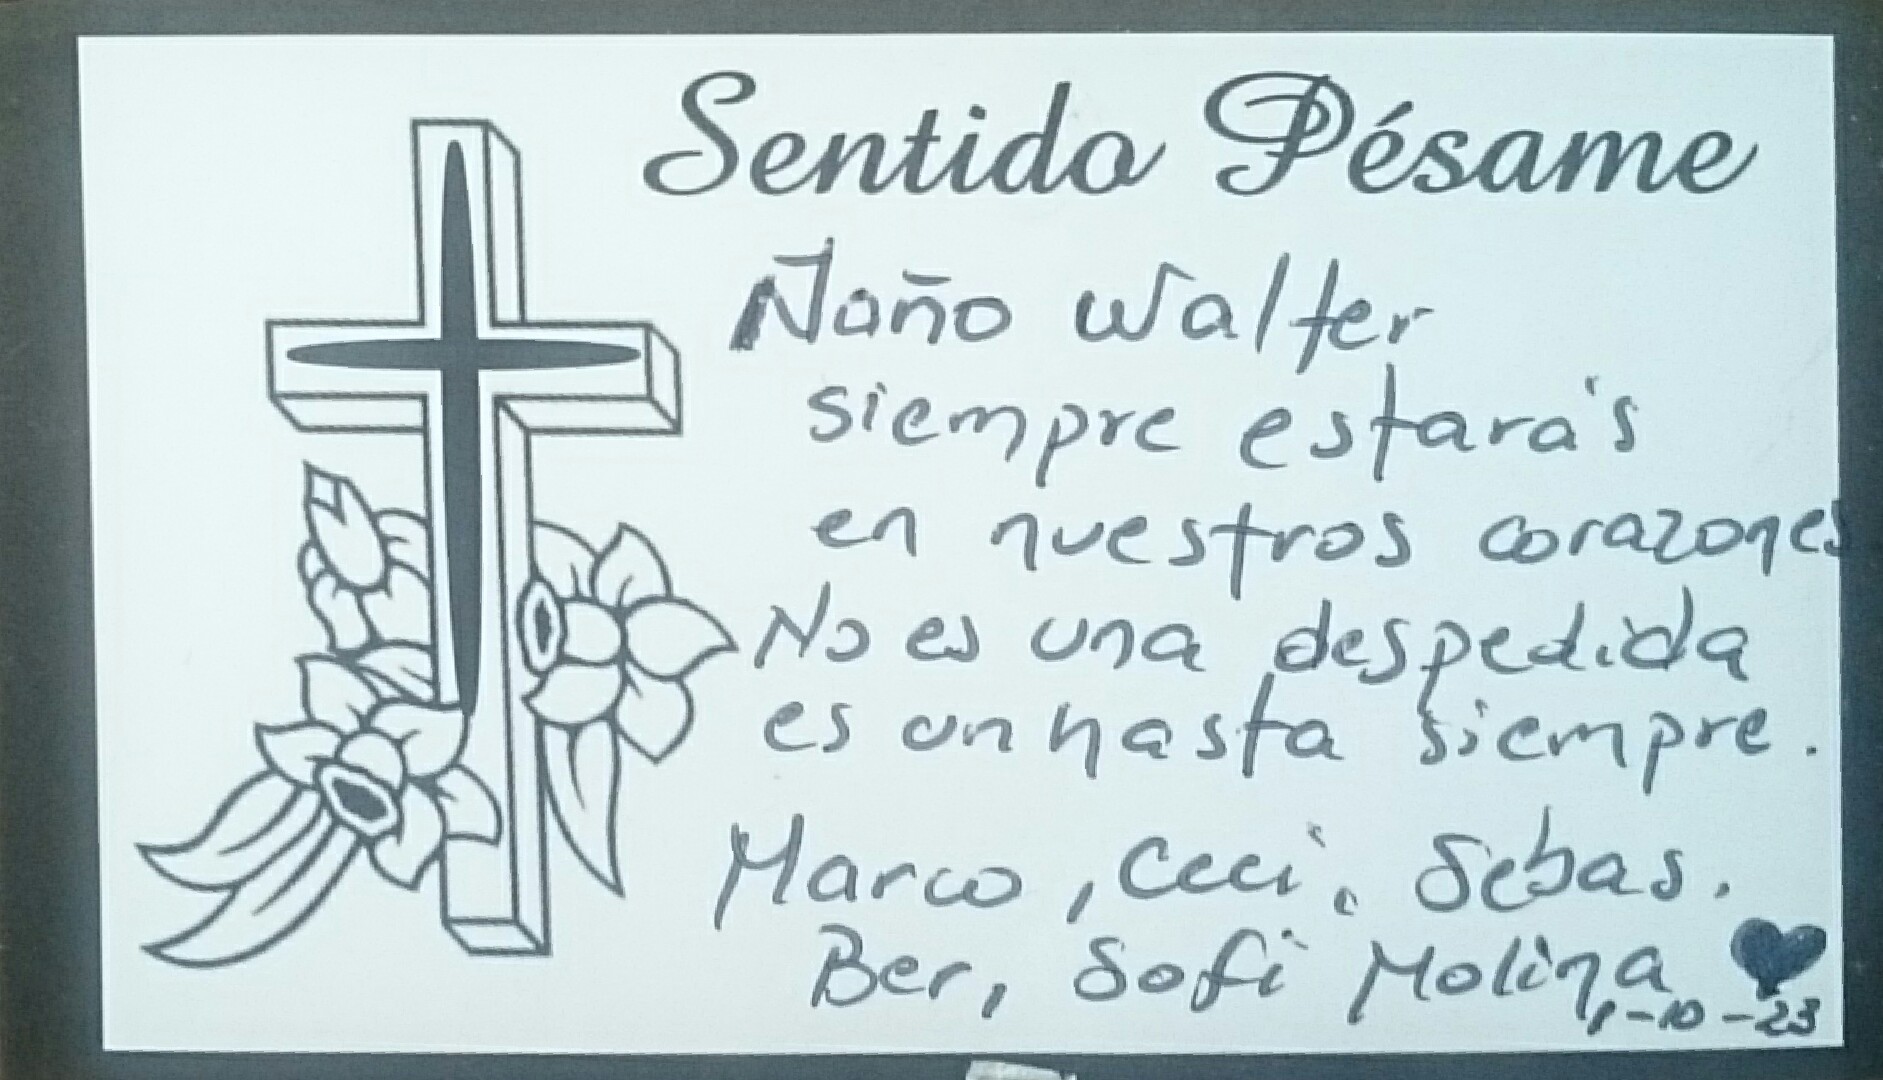 Sentido Pésame
Ñaño Walter
siempre estarás
en nuestros corazones
No es una despedida
es un hasta siempre.
Marco, Ceci, Sebas.
Ber, Sofi Molina
1-10-23